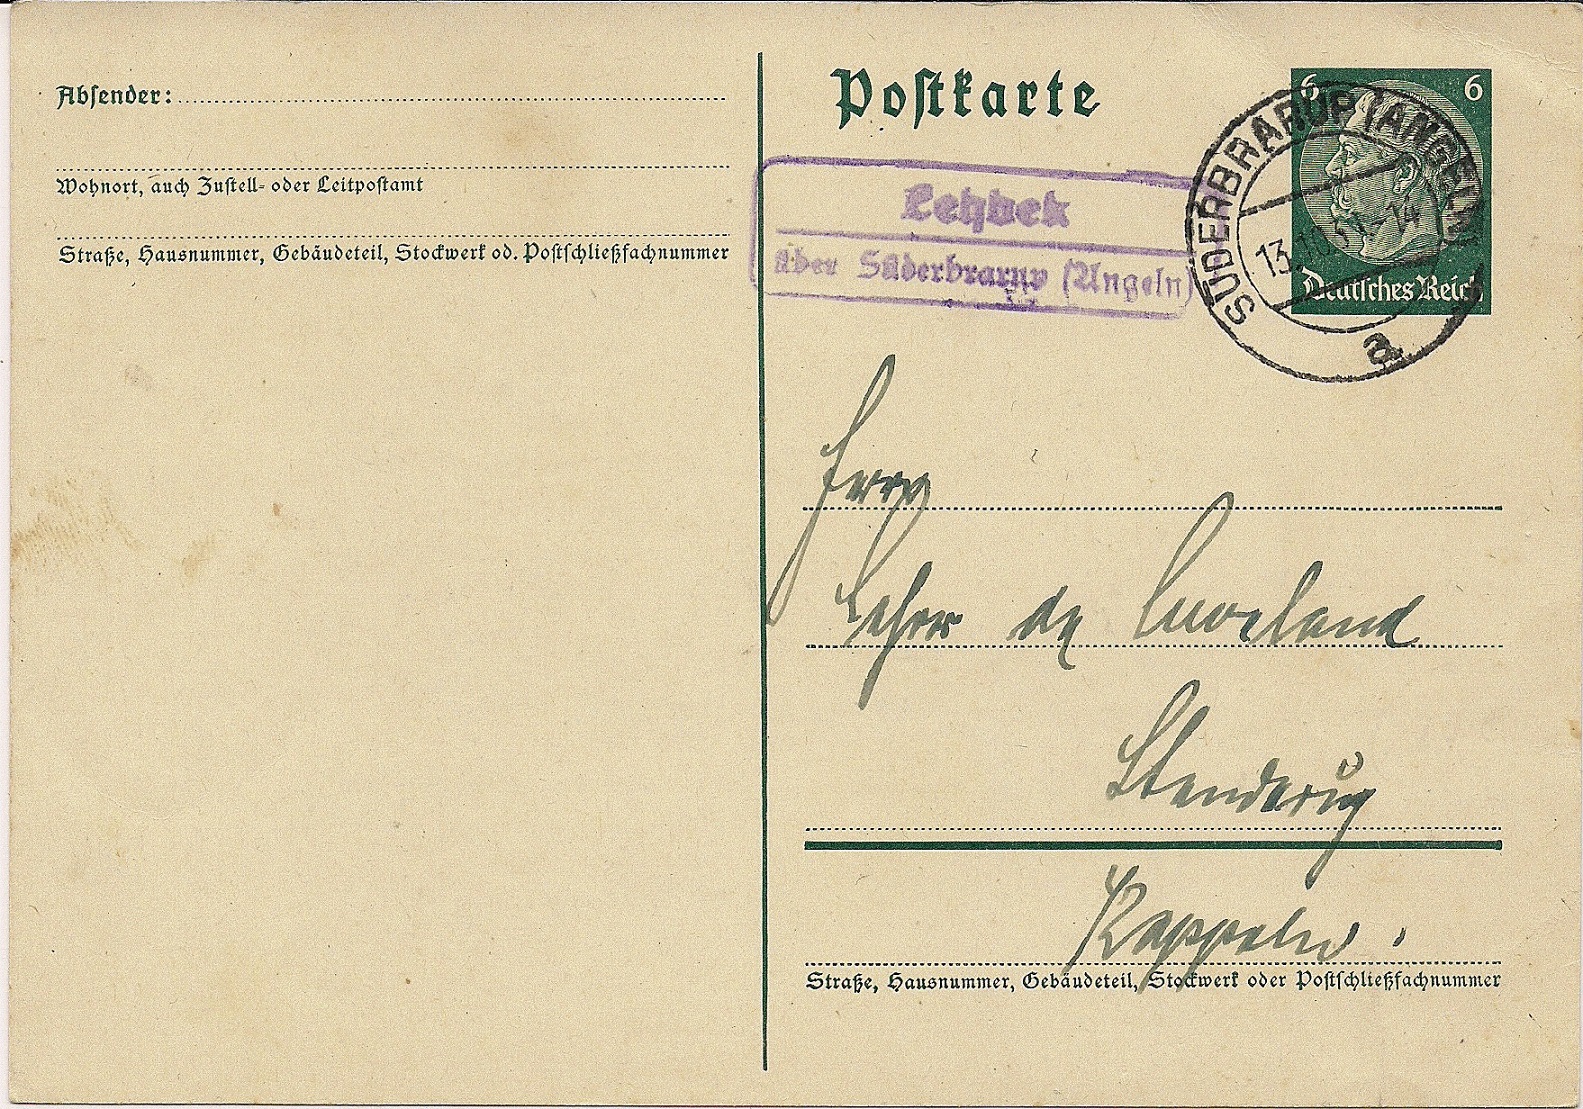 Absender:
Wohnort, auch Zustell- oder Leitpostamt
Straße, Hausnummer, Gebäudeteil, Stockwerk od. Postschließfachnummer
Postkarte
6 6
Deutsches Reich
SÜDERBRARUP (ANGELN)
13.10.34-14
a
Loitbek
über Süderbrarup (Angeln)
Herrn
Lehrer
Kappeln.
Straße, Hausnummer, Gebäudeteil, Stockwerk oder Postschließfachnummer